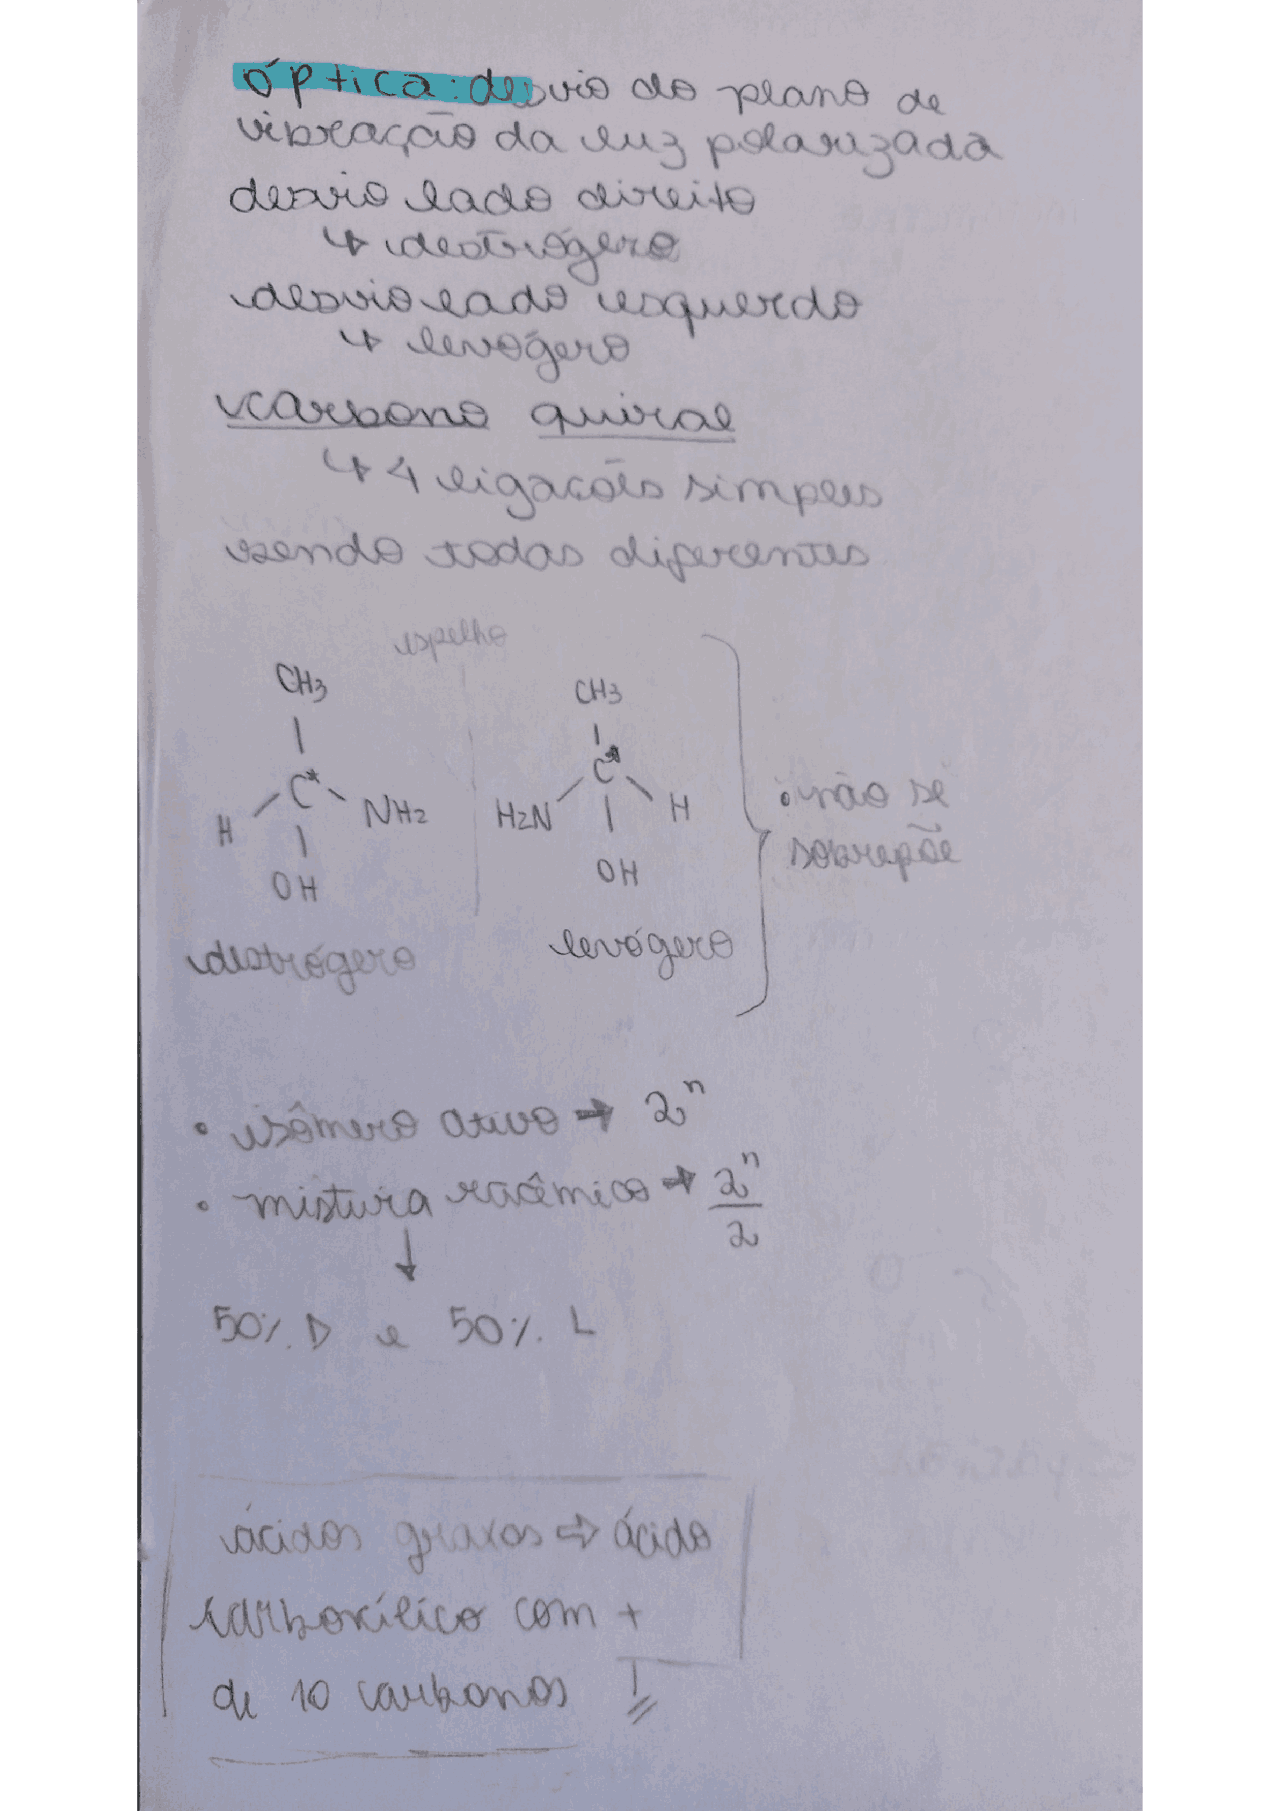 óptica: desvio do plano de
vibração da luz polarizada
desvio lado direito
↳ destrógero
desvio lado esquerdo
↳ levógero
carbono quiral
↳ 4 ligacões simples
sendo todas diferentes
espelho
CH3 CH3
C* C*
H NH2 H2N H
OH OH
• não se
sobrepõe
destrógero levógero
• isômero ativo → 2ⁿ
• mistura racêmico → 2ⁿ/2
↓
50% D e 50% L
ácidos graxos ⇒ ácido
carboxílico com +
de 10 carbonos !